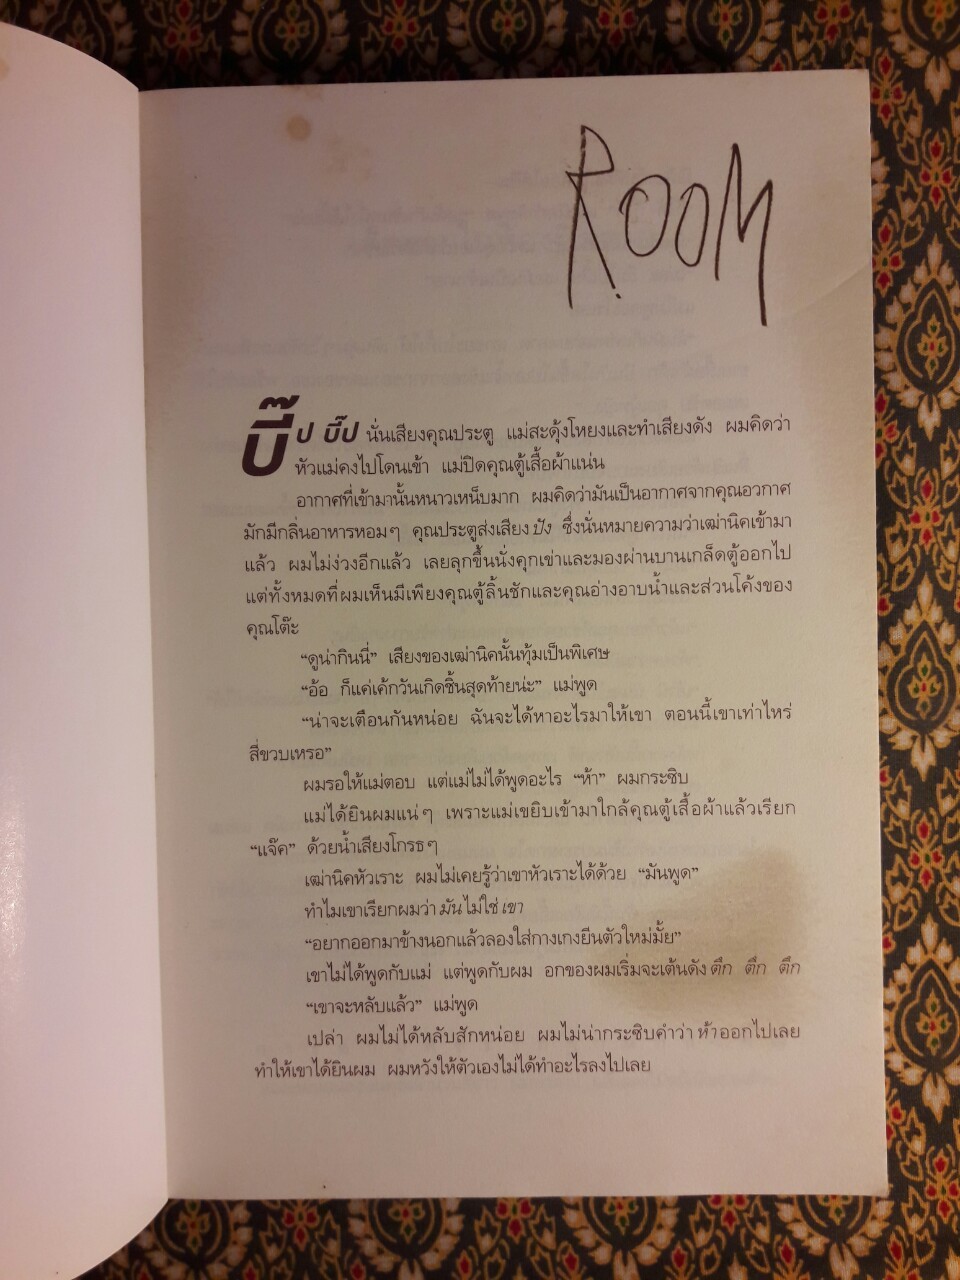 ROOM
บี๊ป บี๊ป นั่นเสียงคุณประตู แม่สะดุ้งโหยงและทำเสียงดัง ผมคิดว่า
หัวแม่คงไปโดนเข้า แม่ปิดคุณตู้เสื้อผ้าแน่น
อากาศที่เข้ามานั้นหนาวเหน็บมาก ผมคิดว่ามันเป็นอากาศจากคุณอวกาศ
มักมีกลิ่นอาหารหอมๆ คุณประตูส่งเสียง ปัง ซึ่งนั่นหมายความว่าเฒ่านิคเข้ามา
แล้ว ผมไม่ง่วงอีกแล้ว เลยลุกขึ้นนั่งคุกเข่าและมองผ่านบานเกล็ดตู้ออกไป
แต่ทั้งหมดที่ผมเห็นมีเพียงคุณตู้ลิ้นชักและคุณอ่างอาบน้ำและส่วนโค้งของ
คุณโต๊ะ
“ดูน่ากินนี่” เสียงของเฒ่านิคนั้นทุ้มเป็นพิเศษ
“อ้อ ก็แค่เค้กวันเกิดชิ้นสุดท้ายน่ะ” แม่พูด
“น่าจะเตือนกันหน่อย ฉันจะได้หาอะไรมาให้เขา ตอนนี้เขาเท่าไหร่
สี่ขวบเหรอ”
ผมรอให้แม่ตอบ แต่แม่ไม่ได้พูดอะไร “ห้า” ผมกระซิบ
แม่ได้ยินผมแน่ๆ เพราะแม่เขยิบเข้ามาใกล้คุณตู้เสื้อผ้าแล้วเรียก
“แจ๊ค” ด้วยน้ำเสียงโกรธๆ
เฒ่านิคหัวเราะ ผมไม่เคยรู้ว่าเขาหัวเราะได้ด้วย “มันพูด”
ทำไมเขาเรียกผมว่า มัน ไม่ใช่ เขา
“อยากออกมาข้างนอกแล้วลองใส่กางเกงยีนตัวใหม่มั้ย”
เขาไม่ได้พูดกับแม่ แต่พูดกับผม อกของผมเริ่มจะเต้นดัง ตึก ตึก ตึก
“เขาจะหลับแล้ว” แม่พูด
เปล่า ผมไม่ได้หลับสักหน่อย ผมไม่น่ากระซิบคำว่า ห้า ออกไปเลย
ทำให้เขาได้ยินผม ผมหวังให้ตัวเองไม่ได้ทำอะไรลงไปเลย